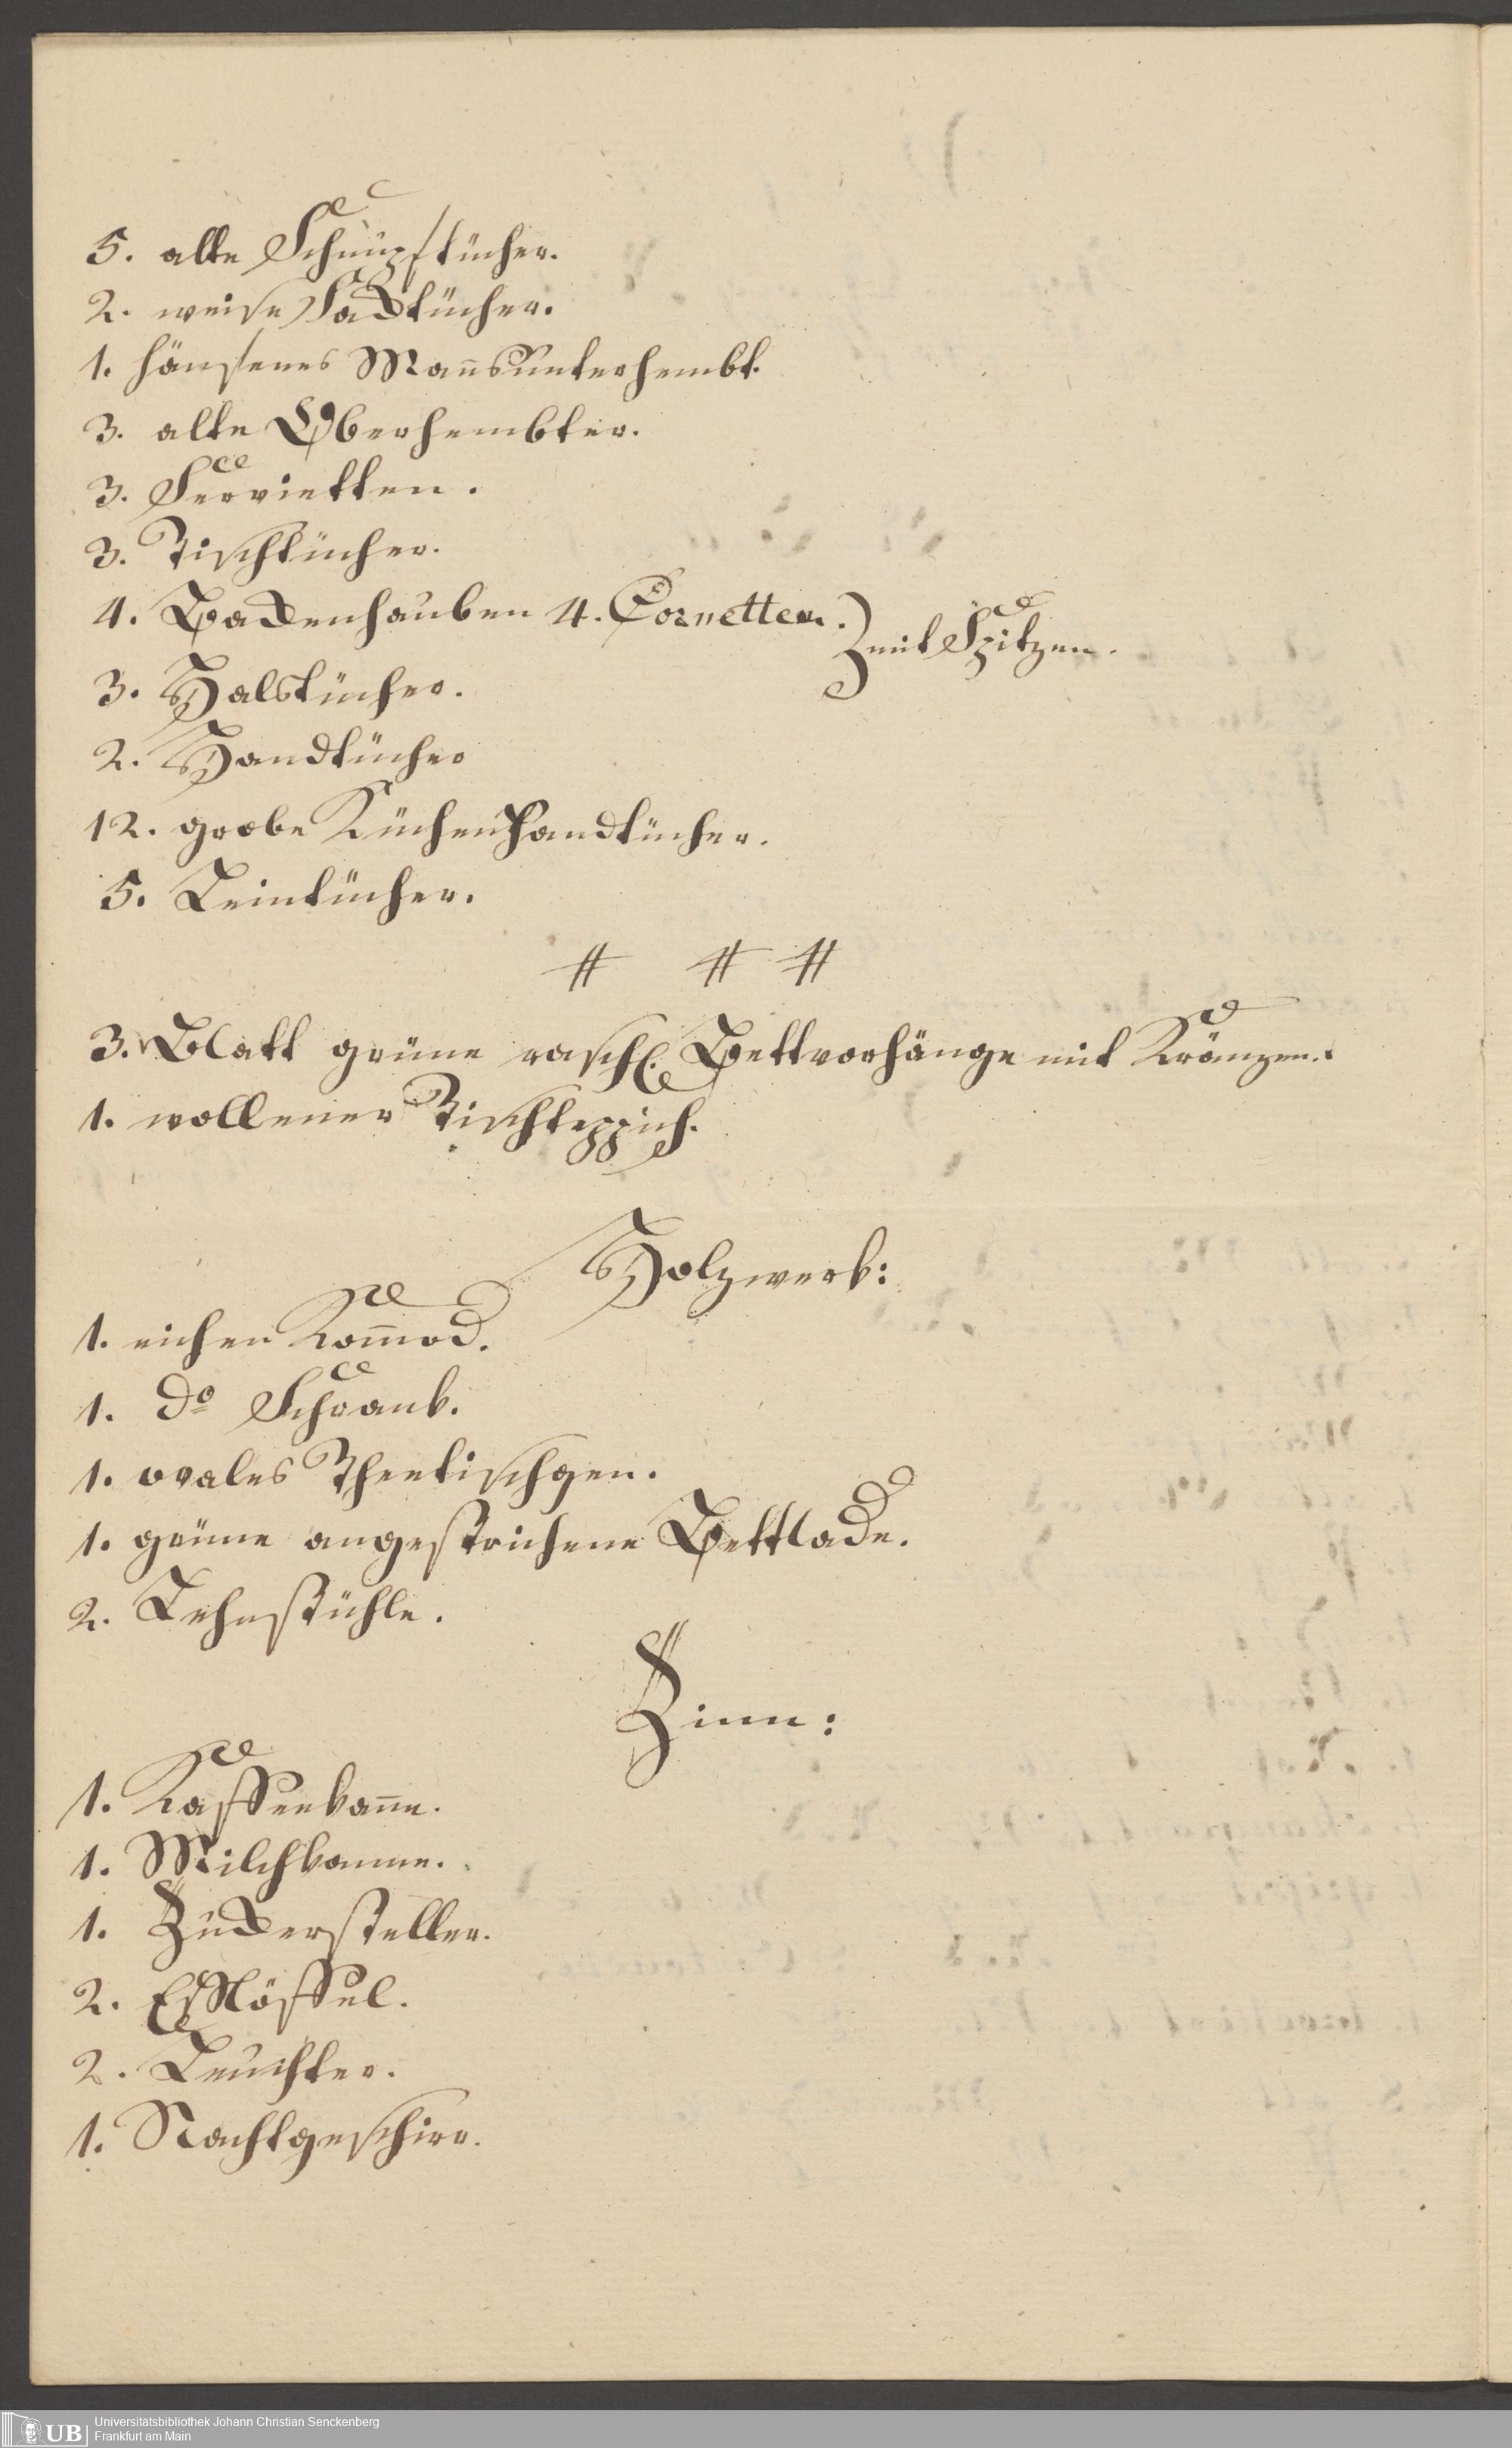 5. alte Schnupftücher.
2. weise Sacktücher.
1. hänfenes Man̅sunterhembt.
3. alte Oberhembter.
3. Servietten.
3. Tischtücher.
4. Backenhauben 4. Cornetten. } mit Spitzen.
3. Halstücher.
2. Handtücher
12. grobe Küchenhandtücher.
5. Leintücher.
# # #
3. Blatt grüne rasch. Bettvorhänge mit Kränzen.
1. wollener Tischteppich.
Holzwerk:
1. eichen Kom̅od.
1. do Schrank.
1. ovales Theetischgen.
1. grüne angestrichene Bettlade.
2. Lehnstühle.
Zinn:
1. Kaffeekan̅e.
1. Milchkanne.
1. Zuckersteller.
2. Eßlöffel.
2. Leuchter.
1. Nachtgeschirr.
UB Universitätsbibliothek Johann Christian Senckenberg
Frankfurt am Main